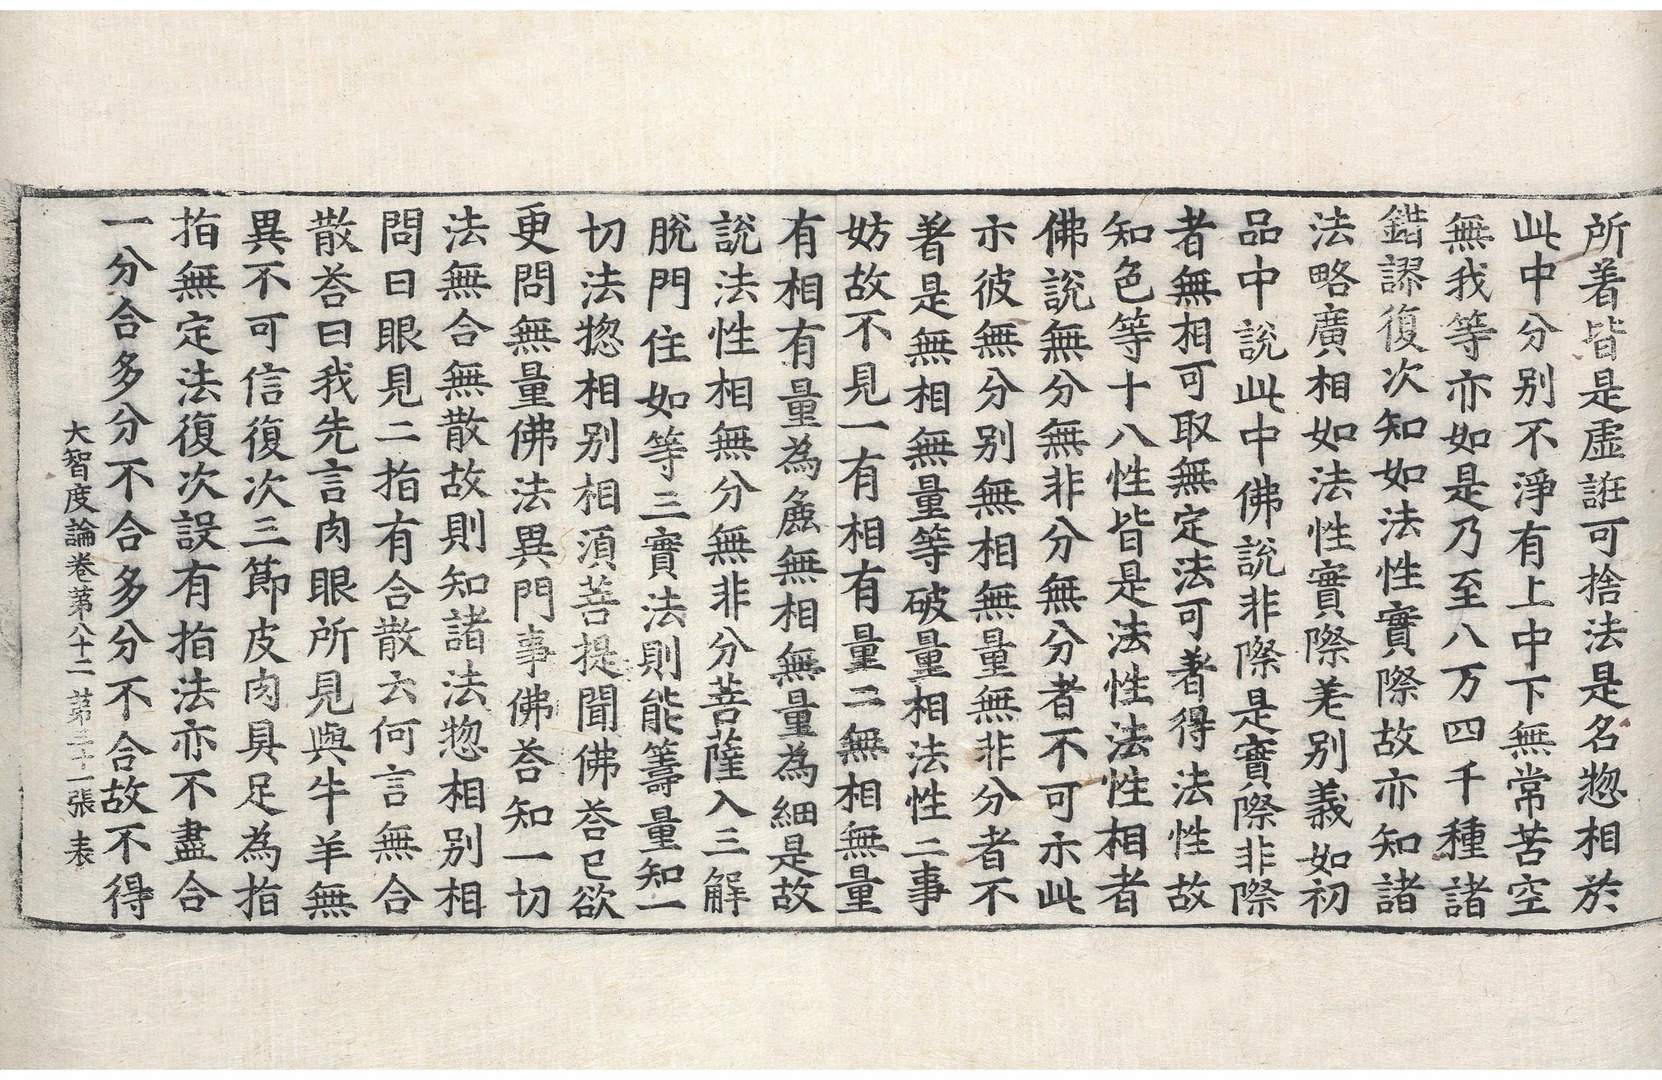 所著皆是虛誑可捨法是名惣相於
此中分別不淨有上中下無常苦空
無我等亦如是乃至八万四千種諸
錯謬復次知如法性實際故亦知諸
法略廣相如法性實際差別義如初
品中說此中佛說非際是實際非際
者無相可取無定法可著得法性故
知色等十八性皆是法性法性相者
佛說無分無非分無分者不可示此
示彼無分別無相無量無非分者不
著是無相無量等破量相法性二事
妨故不見一有相有量二無相無量
有相有量為麁無相無量為細是故
說法性相無分無非分菩薩入三解
脫門住如等三實法則能籌量知一
切法惣相別相須菩提聞佛荅已欲
更問無量佛法異門事佛荅知一切
法無合無散故則知諸法惣相別相
問曰眼見二指有合散云何言無合
散荅曰我先言肉眼所見與牛羊無
異不可信復次三節皮肉具足為指
指無定法復次設有指法亦不盡合
一分合多分不合多分不合故不得
大智度論卷第八十二 第三十一張 表